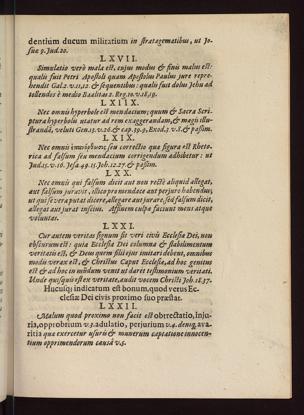 dentium ducum militarium in stratagematibus, ut Jo-
suæ 9. Jud. 20.
LXVII.
Simulatio verò mala est, cujus modus & finis malus est:
qualis fuit Petri Apostoli quam Apostolus Paulus jure repre-
hendit Gal. 2. v. 11, 12 & sequentibus: qualis fuit dolus Jehu ad
tollendos è medio Baalitas 2. Reg. 10. v. 18, 19.
LXIIX.
Nec omnis hyperbole est mendacium; quum & Sacra Scri-
ptura hyperboli utatur ad rem exaggerandam, & magis illu-
strandā, veluti Gen. 13. v. 16. & cap. 19. 9, Exod. 3 v. 8. & passim.
LXIX.
Nec omnis seu correctio quæ figura est Rheto-
rica ad falsum seu mendacium corrigendum adhibetur: ut
Jud. 15. v. 16. Jesa. 49. 15. Joh. 12. 27. & passim.
LXX.
Nec omnis qui falsum dicit aut non rectè aliquid allegat,
aut falsum juravit, illico pro mendace aut perjuro habendus;
ut qui se vera putat dicere, allegare aut jurare, sed falsum dicit,
allegat aut jurat inscius. Assinem culpa faciunt mens atque
voluntas.
LXXI.
Cur autem veritas signum sit veri civis Ecclesiæ Dei, non
obscurum est: quia Ecclesia Dei columna & stabilimentum
veritatis est, & Deus quem filii ejus imitari debent, omnibus
modis verax est, & Christus Caput Ecclesiæ, ad hoc genitus
est & ad hoc in mūdum venit ut daret testimonium veritati.
Unde quisquis est ex veritate, audit vocem Christi Joh. 18. 37.
Hucusq; indicatum est bonum, quod verus Ec-
clesiæ Dei civis proximo suo præstat.
LXXII.
Malum quod proximo non facit est obtrectatio, inju-
ria, opprobrium v. 3. adulatio, perjurium v. 4. denuq; ava-
ritia quæ exercetur usuris & munerum captatione innocen-
tium opprimendorum causâ v. 5.